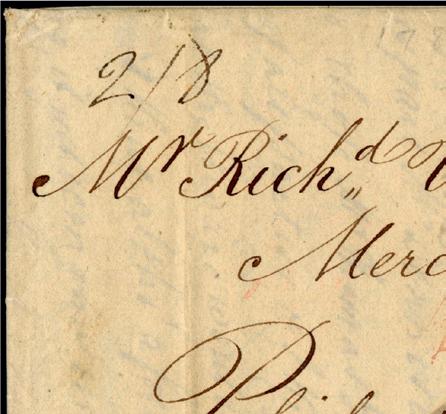 2/8
Mr Richd
Merc
Phil